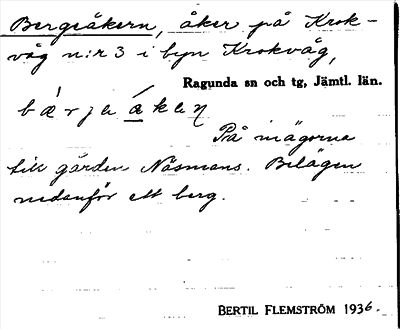 Bergsåkern, åker på Krok-
våg n:r 3 i byn Krokvåg,
Ragunda sn och tg, Jämtl. län.
På inägorna
till gården Näsmans. Belägen
nedanför ett berg.
BERTIL FLEMSTRÖM 1936.